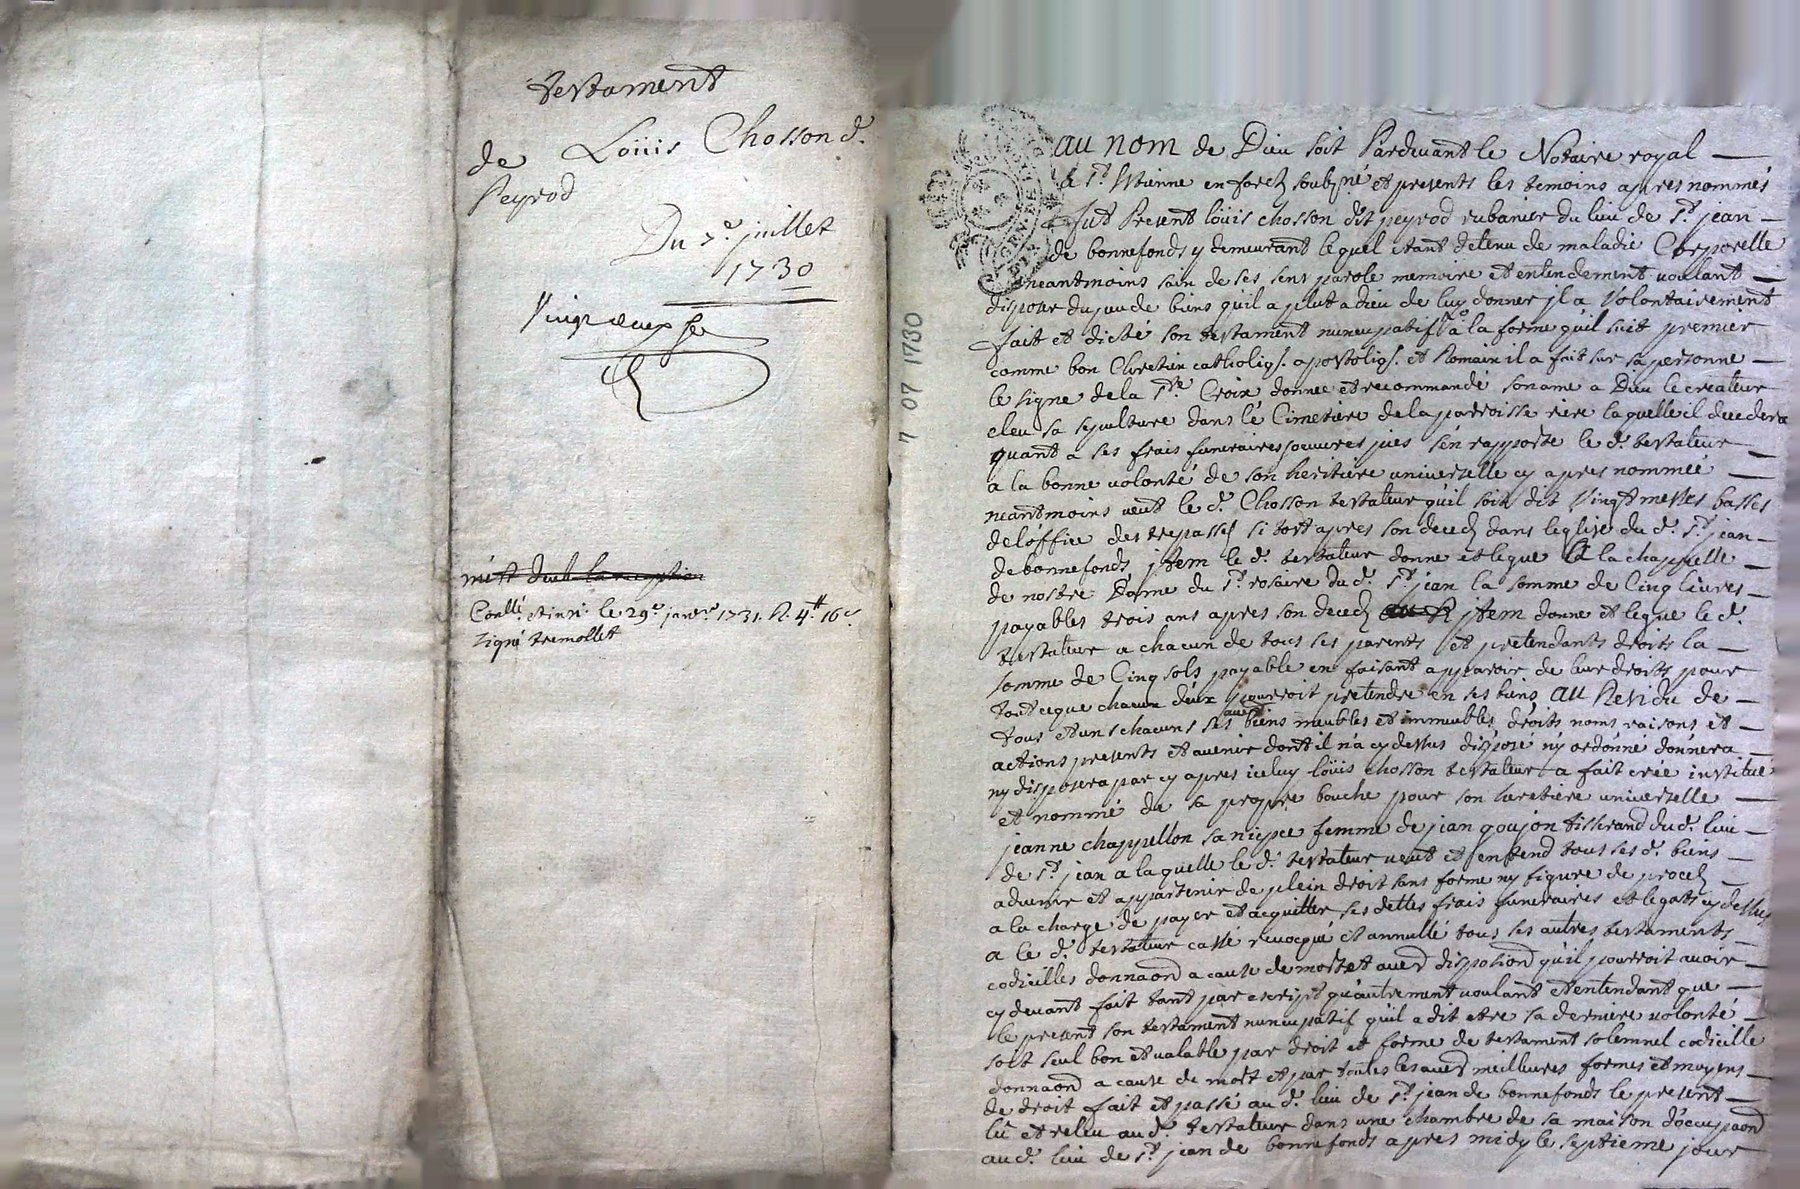 testament
de Loüis Chosson d.
Peyrod
Du 7e juillet
1730
Contlé. et insi. le 29e janvr. 1731. R. 4tt 16s
signé tremollet
7 07 1730
au nom de Dieu soit Pardevant le Notaire royal
à St. Etienne en forest soubzné et presents les temoins apres nommés
fut Present loüis chosson dit peyrod rubanier du lieu de St. jean
de bonnefonds y demeurant lequel etant detenu de maladie Corporelle
neantmoins sain de ses sens parole memoire et entendement voulant
disposer du peu de biens quil a plut a dieu de luy donner jl a Volontairement
fait et dicté son testament nuncupatif à la forme quil suit premier
comme bon Chretien catholiq. apostoliq. et Romain il a fait sur sa personne
le signe de la Ste. Croix donnée et recommandé son ame a Dieu le createur
eleu sa sepulture dans le Cimetiere de la parroisse riere laquelle il decedera
quant a ses frais funeraires oeuvres pies s'en rapporte le d. testateur
a la bonne volonté de son heritiere universelle cy apres nommée
neantmoins veut le d. Chosson testateur qu'il soit dit Vingt messes basses
de l'office des trepassés si tost apres son deceds dans leglise du d. St. jean
de bonnefonds jtem le d. testateur donne et legue a la chappelle
de nostre Dame du St. rosaire du d. St. jean la somme de Cinq livres
payables trois ans apres son deceds jtem donne et legue le d.
testateur a chacun de tous ses parents et pretendants droits la
somme de Cinq sols payable en faisant apparoir de leur droits pour
tout ce que chacun d'eux pourroit pretendre en ses biens au Residu de
tous et uns chacuns ses biens meubles et immeubles droits noms raisons et
actions presents et avenir dont il n'a cy dessus disposé n'y ordonné donnera
ny disposera par cy apres iceluy loüis chosson testateur a fait crée institué
et nommé de sa propre bouche pour son heretiere universelle
jeanne chappellon sa niepce femme de jean goujon tisserand du d. lieu
de St. jean a laquelle le d. testateur veut et entend tous ses d. biens
advenir et appartenir de plein droit sans forme ny figure de procès
a la charge de payer et acquitter ses dettes frais funeraires et legats cy dessus
a le d. testateur cassé revocqué et annullé tous ses autres testaments
codicilles donnaond a cause de mort et auerd disposiond qu'il pourroit avoir
cy devant fait tant par escript qu'autrement voulant et entendant que
le present son testament nuncupatif qu'il a dit etre sa derniere volonté
soit seul bon et valable par droit et forme de testament solemnel codicille
donnaond a cause de mort et par toutes les auerd meilleures formes et moyens
de droit fait et passé au d. lieu de St. jean de bonnefonds le present
lû et releu au d. testateur dans une chambre de sa maison d'occupaond
au d. lieu de St. jean de bonnefonds apres midy le septieme jour